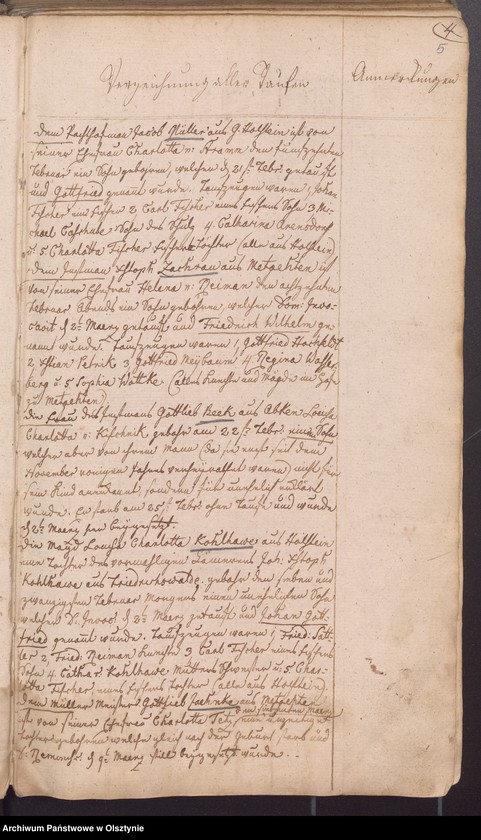 4
5
Verzeichnung aller Taufen
Anmerkungen
Dem Pachthofman Jacob Müller aus G. Holstein ist von
seiner Ehefrau Charlotta n: Aramm den fünfzehnten
Februar ein Sohn gebohren, welcher d 21st Febr. getauft
und Gottfried genant wurde. Taufzeugen waren 1, Johan
Fischer ein Fischer 2, Carl Fischer eines Fischers Sohn 3 Mi-
chael Sohn des Schulz 4. Catharina Arensdorf
u: 5 Charlotta Fischer Fischers Tochter (alle aus Holstein
Dem Instman Christoph Zachrau aus Metgethen ist
von seiner Ehefrau Helena n: Neiman den achtzehnten
Februar Abends ein Sohn gebohren, welcher Dom: Invo-
cavit d 2t Maerz getauft und Friedrich Wilhelm ge-
nant wurde. Taufzeugen waren 1, Gottfried
2, Petrik 3 Gottfried Neybaum 4 Regina Wasser
berg u 5 Sophia Wottke (alle Knechte und Mägde im Hofe
zu Metgethen)
Die Frau des Instmans Gottlieb Beek aus Abken Louise
Charlotta n: gebahr am 22st Febr. einen Sohn
welchen aber von ihrem Mann (da sie erst seit dem
November vorigen Jahres verheirathet waren) nicht für
sein Kind anerkant, sondern für unehelich erklärt
wurde. Er starb am 25st Febr. ohne Taufe und wurde
d 2t Maerz beygesetzt.
Die Magd Louisa Charlotta Kohlhawe aus Holstein
eine Tochter des vormahligen Joh: Christoph
Kohlhawe aus Friedrichswalde. gebahr den sieben und
zwanzigsten Februar Morgens einen unehelichen Sohn
welcher D: Invoc: d 2t Maerz getauft und Johan Gott-
fried genant wurde. Taufzeugen waren 1, Fried: Satt-
ler 2, Fried: Neiman Knecht 3 Carl Fischer eines Fischers
Sohn 4 Cathar: Kohlhawe Mutters Schwester u: 5 Char-
lotta Fischer, eines Fischers Tochter (alle aus Holstein).
Dem Müller Meister Gottlieb Jaehnke aus Metgethen
ist von seiner Ehefrau Charlotta
Tochter gebohren welche gleich nach der Geburt starb und
D: Reminisc: d 9t Maerz still beygesetzt wurde. –
Archiwum Państwowe w Olsztynie